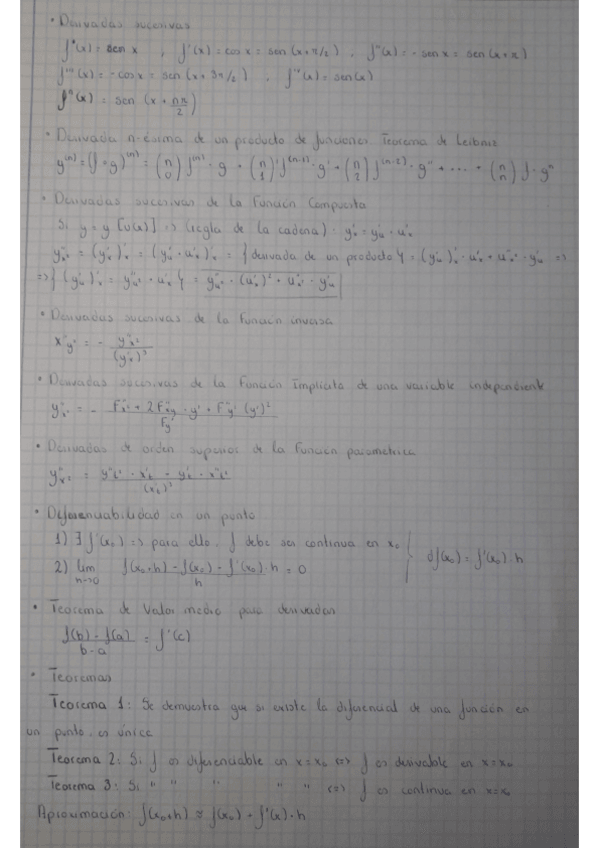 • Derivadas sucesivas
f⁰(x) = sen x , f'(x) = cos x = sen (x + π/2) , f''(x) = - sen x = sen (x + π)
f'''(x) = - cos x = sen (x + 3π/2) , f''''(x) = sen(x)
fⁿ(x) = sen (x + nπ/2)
• Derivada n-ésima de un producto de funciones. Teorema de Leibniz
y⁽ⁿ⁾ = (f · g)⁽ⁿ⁾ = (n 0) f⁽ⁿ⁾ · g + (n 1) f⁽ⁿ⁻¹⁾ · g' + (n 2) f⁽ⁿ⁻²⁾ · g'' + ... + (n n) f · gⁿ
• Derivadas sucesivas de la Función Compuesta
Si y = y [u(x)] => (regla de la cadena) · y'ₓ = y'ᵤ · u'ₓ
y''ₓ² = (y'ₓ)'ₓ = (y'ᵤ · u'ₓ)'ₓ = { derivada de un producto } = (y'ᵤ)'ₓ · u'ₓ + u''ₓ² · y'ᵤ =>
=> { (y'ᵤ)'ₓ = y''ᵤ² · u'ₓ } = y''ᵤ² · (u'ₓ)² + u''ₓ² · y'ᵤ
• Derivadas sucesivas de la Función inversa
x''y² = - y''ₓ² / (y'ₓ)³
• Derivadas sucesivas de la Función Implícita de una variable independiente
y''ₓ² = - F''ₓ² + 2F''ₓy · y' + F''y² (y')² / F'y
• Derivadas de orden superior de la Función paramétrica
y''ₓ² = y''t² · x't - y't · x''t² / (x't)³
• Diferenciabilidad en un punto
1) ∃ f'(x₀) => para ello, f debe ser continua en x₀
2) lim h→0 f(x₀+h) - f(x₀) - f'(x₀)·h / h = 0 } df(x₀) = f'(x₀)·h
• Teorema de Valor medio para derivadas
f(b) - f(a) / b - a = f'(c)
• Teoremas
Teorema 1: Se demuestra que si existe la diferencial de una función en
un punto, es única
Teorema 2: Si f es diferenciable en x=x₀ <=> f es derivable en x=x₀
Teorema 3: Si " " " " " <=> f es continua en x=x₀
Aproximación: f(x₀+h) ≈ f(x₀) + f'(x)·h